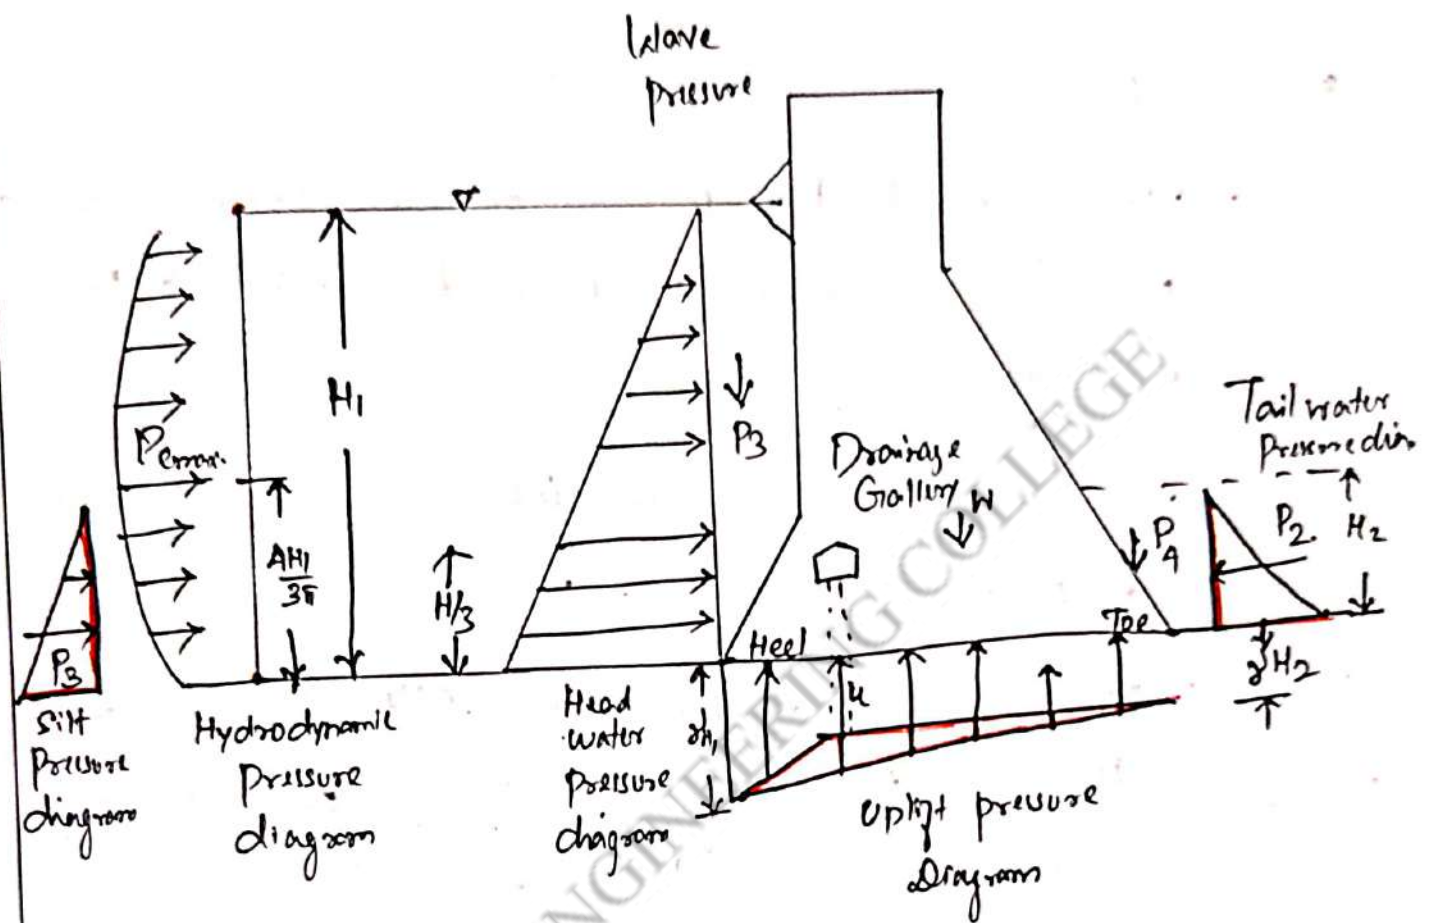 Wave
pressure
H1
Pemax.
4H1
3π
H/3
P3
Drainage
Gallery
W
P4
Tail water
Pressure dia.
P2.
H2
Heel
Toe
γH2
u
γH1
P3
Silt
Pressure
diagram
Hydrodynamic
Pressure
diagram
Head
water
pressure
diagram
Uplift pressure
Diagram
ENGINEERING COLLEGE